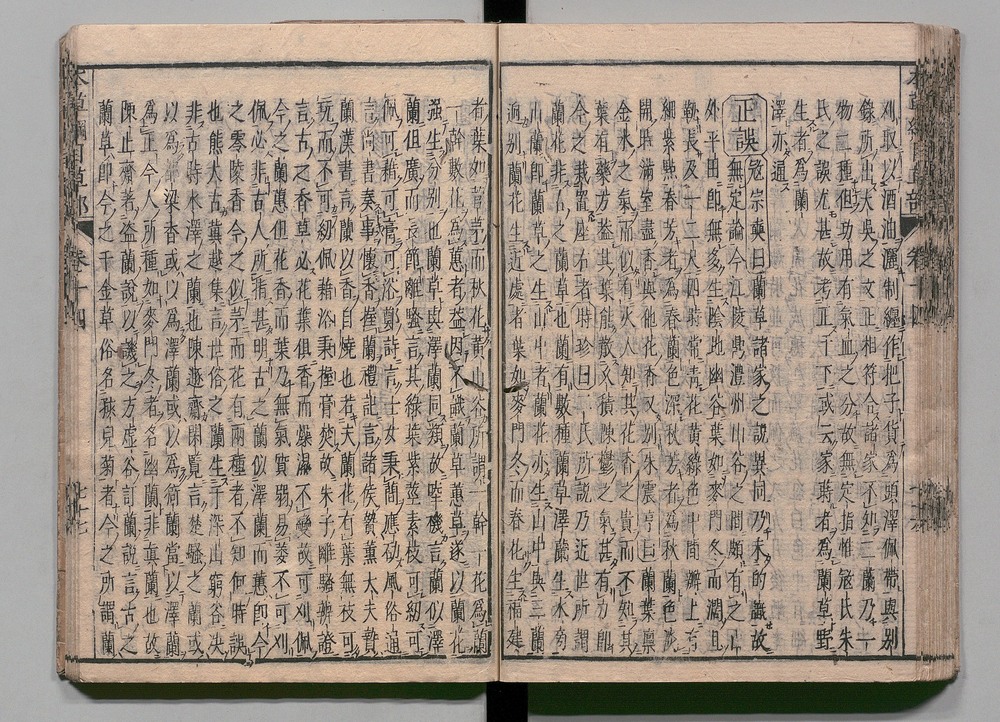 刈取以酒油灑制纏作把子貨爲頭澤佩帶與別
錄所出大吳之文正相符合諸家不知二蘭乃一
物二種但功用有氣血之分故無定指惟寇氏朱
氏之誤尤甚故考正于下或云家蒔者爲蘭草野
生者爲
澤亦通
正誤寇宗奭曰蘭草諸家之說異同乃未的識故
無定論今江陵鼎澧州山谷之間頗有之山
外平田即無多生陰地幽谷葉如麥門冬而濶且
靱長及一二尺四時常青花黃綠色中間瓣上有
細紫點春芳者爲春蘭色深秋芳者爲秋蘭色淡
開時滿室盡香與他花香又別朱震亨曰蘭葉稟
金水之氣而似有火人知其花香之貴而不知其
葉有藥方蓋其葉能散久積陳鬱之氣甚有力即
今之栽置座右者時珍曰二氏所說乃近世所謂
蘭花非古之蘭草也蘭有數種蘭草澤蘭生水旁
山蘭即蘭草之生山中者蘭花亦生山中與三蘭
迥別蘭花生近處者葉如麥門冬而春花生福建
者葉如菅茅而秋花黃山谷所謂一幹一花爲蘭
一幹數花爲蕙者蓋因不識蘭草蕙草遂以蘭花
强生分別也蘭草與澤蘭同類故陸機言蘭似澤
蘭但廣而長節離騷言其綠葉紫莖素枝可紉可
佩可藉可膏可浴鄭詩言士女秉蕑應劭風俗通
言尚書奏事懷香握蘭禮記言諸侯贄薰大夫贄
蘭漢書言蘭以香自燒也若夫蘭花有葉無枝可
玩而不可紉佩藉浴秉握膏焚故朱子離騷辨證
言古之香草必花葉俱香而燥濕不變故可刈佩
今之蘭蕙但花香而葉乃無氣質弱易萎不可刈
佩必非古人所指甚明古之蘭似澤蘭而蕙即今
之零陵香今之似茅而花有兩種者不知何時誤
也熊太古冀越集言世俗之蘭生于深山窮谷決
非古時水澤之蘭也陳遯齋閒覽言楚騷之蘭或
以爲都梁香或以爲澤蘭或以爲猗蘭當以澤蘭
爲正今人所種如麥門冬者名幽蘭非真蘭也故
陳止齋著盜蘭說以譏之方虛谷訂蘭說言古之
蘭草即今之千金草俗名孩兒菊者今之所謂蘭